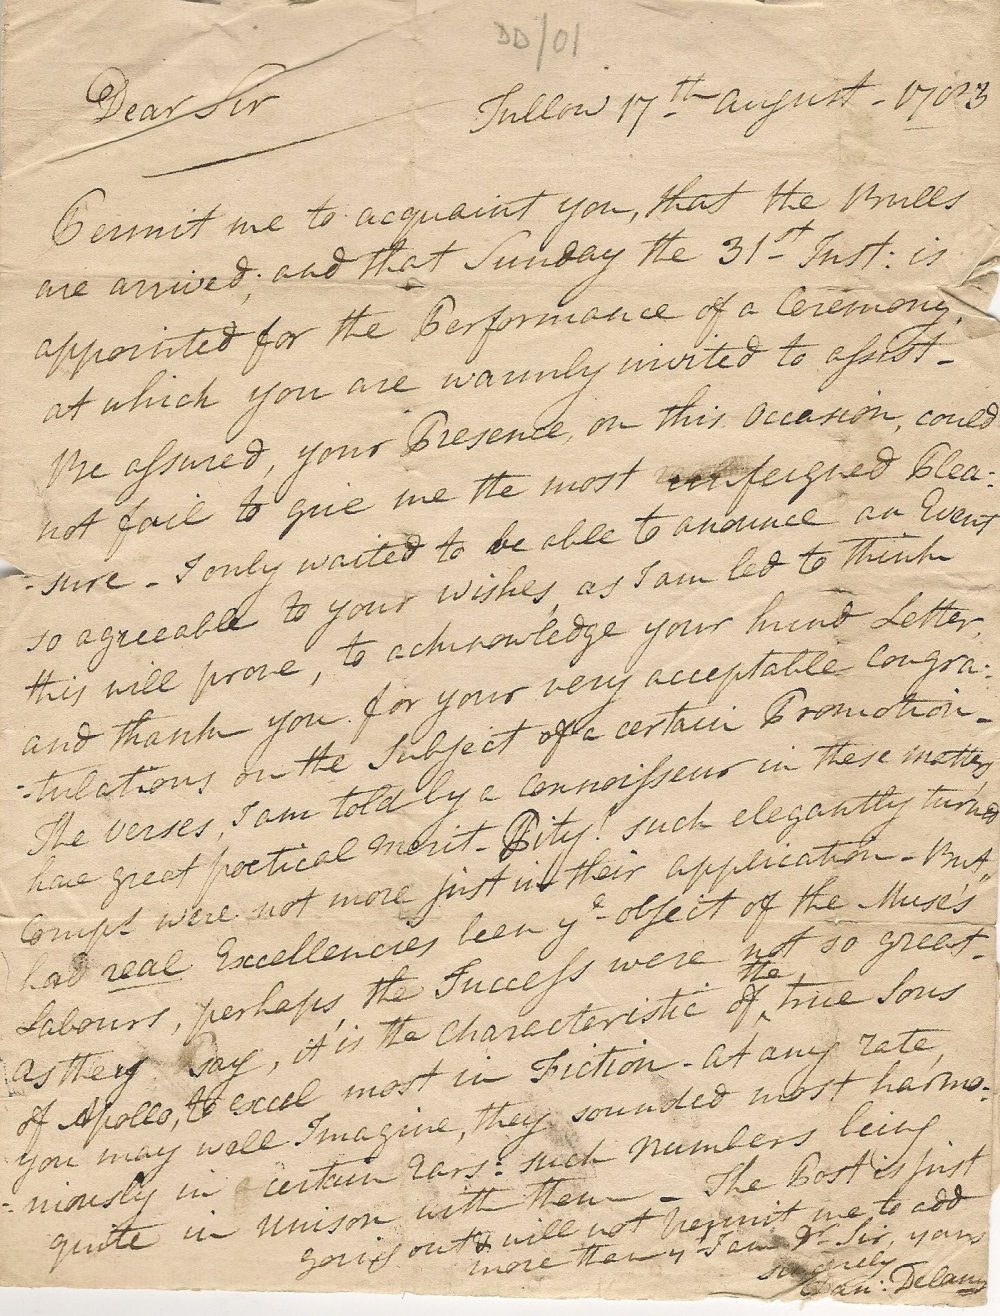 DD/01
Dear Sir
Tullow 17th August - 1783
Permit me to acquaint you, that the Bulls
are arrived; and that Sunday the 31st Inst: is
appointed for the Performance of a Ceremony,
at which you are warmly invited to assist -
Be assured, your Presence, on this occasion, could
not fail to give me the most unfeigned Plea:
-sure - I only waited to be able to anounce an Event
so agreeable to your wishes, as I am led to think
this will prove, to acknowledge your kind Letter,
and thank you for your very acceptable Congra:
-tulations on the Subject of a certain Promotion -
The verses, I am told by a Connoisseur in these matters,
have great poetical merit - Pity! such elegantly turned
Compts were not more just in their application - But,
had real Excellencies been ye object of the Muse's
Labours, perhaps, the Success were not so great -
As they say, it is the characteristic of the true Sons
of Apollo, to excel most in Fiction - at any rate,
you may well Imagine, they sounded most harmo:
-niously in certain Ears: such numbers being
quite in unison with them - The Post is just
going out & will not permit me to add
more than yt I am Dr Sir, yours
sincerely
Dan: Delany